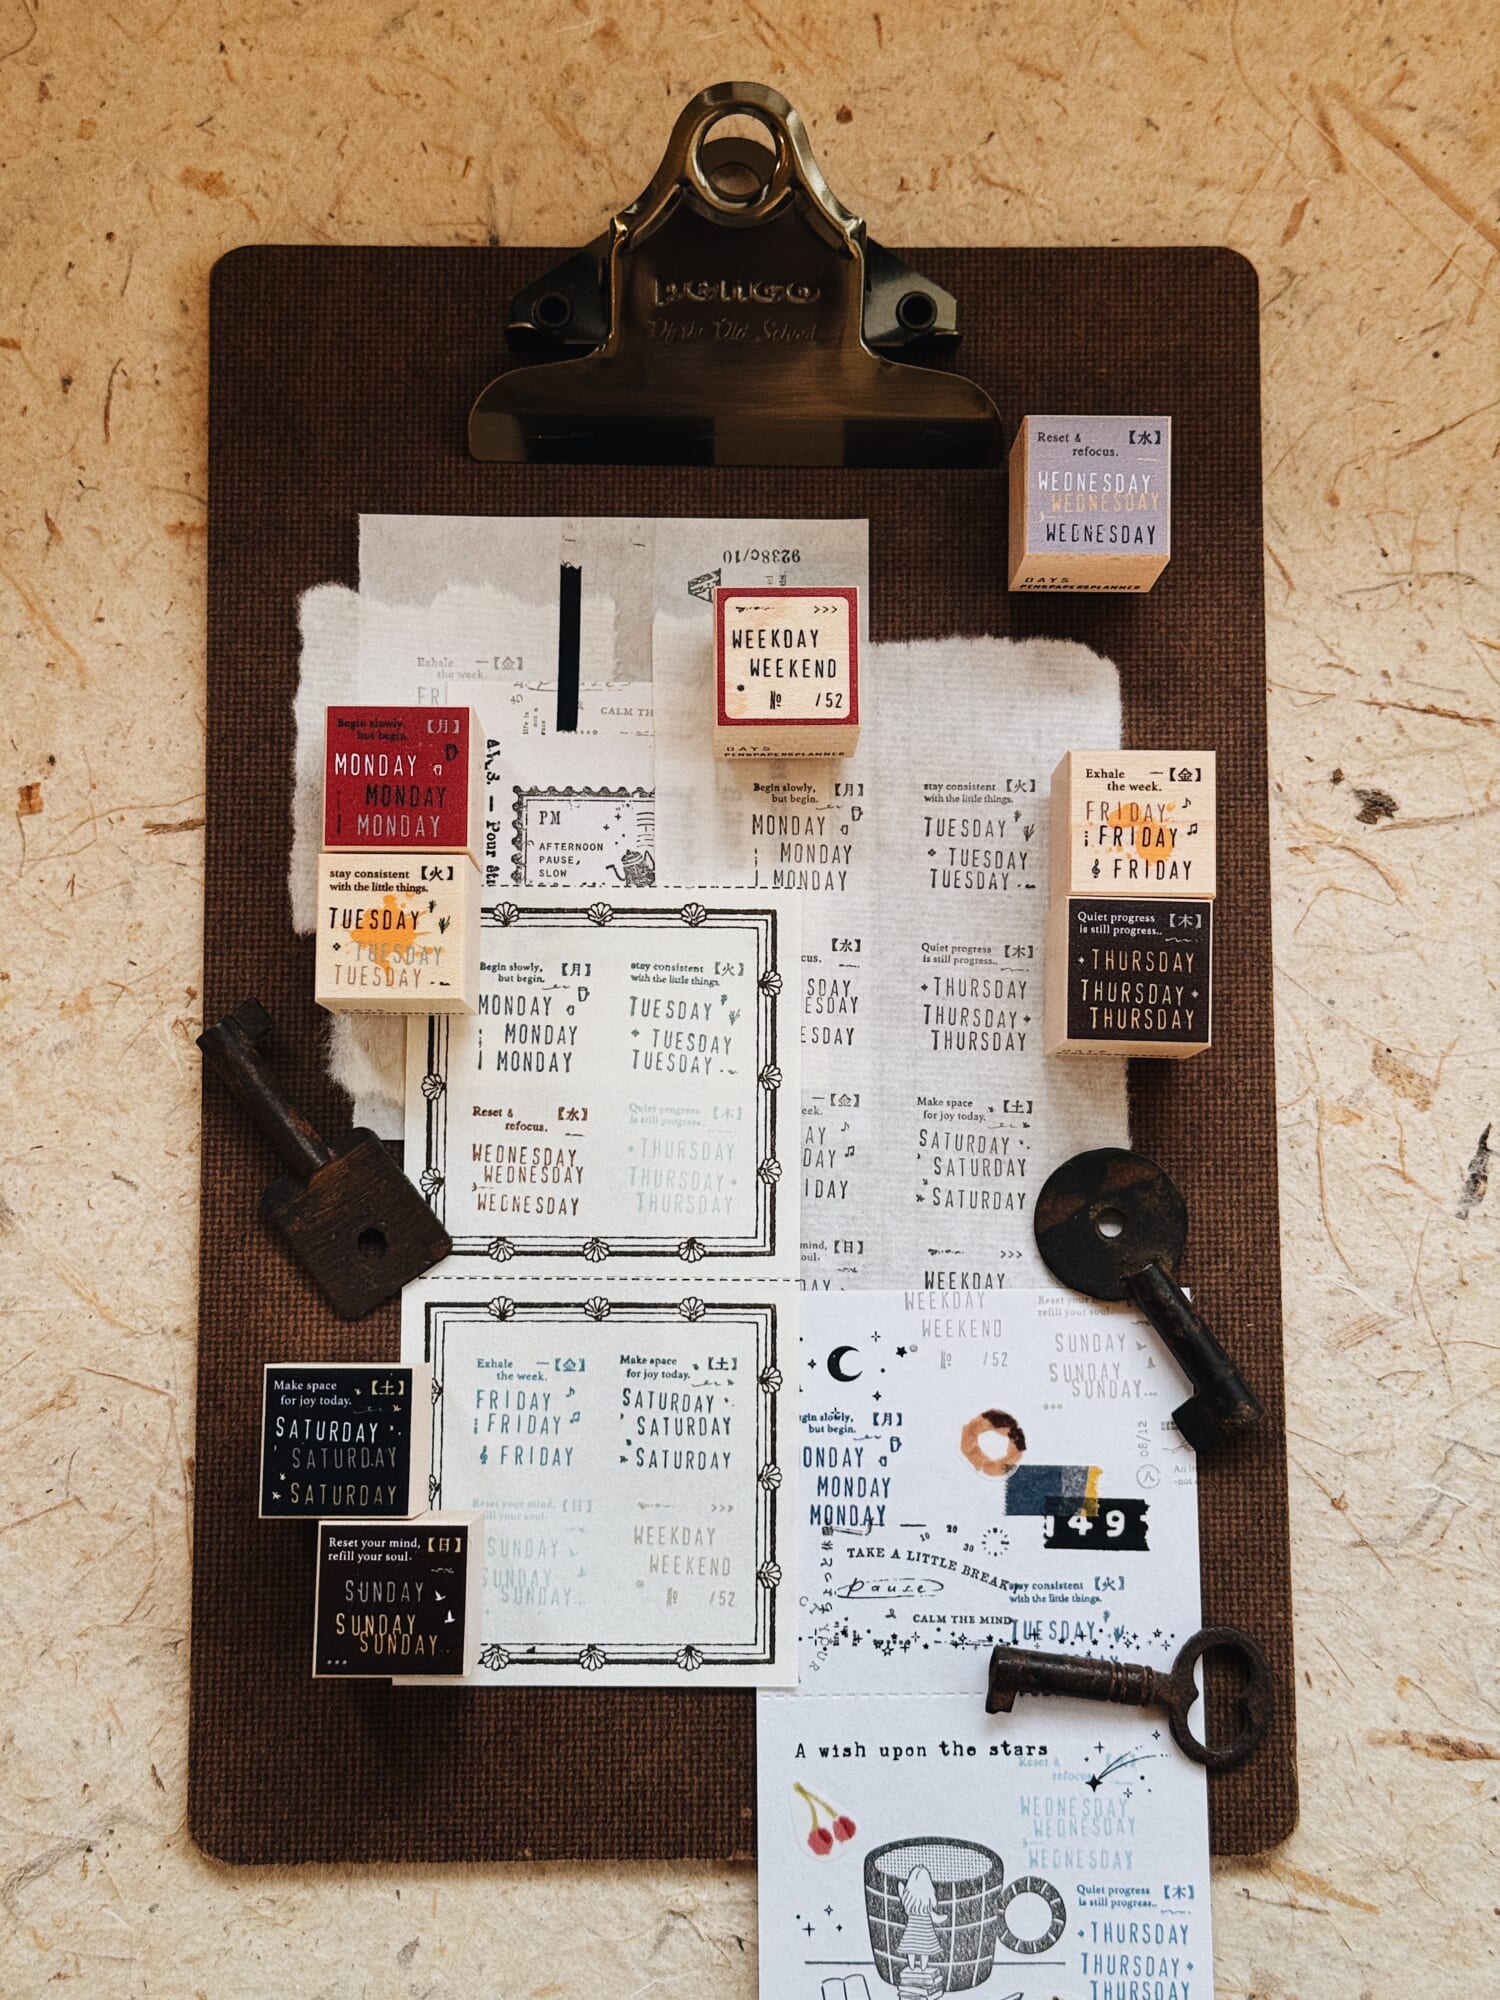 penco
Reset & 【水】
refocus.
WEDNESDAY
WEDNESDAY
WEDNESDAY
DAYS
PENSPAPERSPLANNER
9238c/10
>>>
WEEKDAY
WEEKEND
№ /52
DAYS
PENSPAPERSPLANNER
Exhale 一【金】
the week.
FRI
CALM TH
Begin slowly, 【月】
but begin.
MONDAY
MONDAY
MONDAY
stay consistent 【火】
with the little things.
TUESDAY
TUESDAY
TUESDAY
PM
AFTERNOON
PAUSE,
SLOW
Begin slowly, 【月】
but begin.
MONDAY
MONDAY
MONDAY
stay consistent 【火】
with the little things.
TUESDAY
TUESDAY
TUESDAY
Exhale 一【金】
the week.
FRIDAY
FRIDAY
FRIDAY
Quiet progress 【木】
is still progress..
THURSDAY
THURSDAY
THURSDAY
【水】
cus.
SDAY
ESDAY
ESDAY
Quiet progress 【木】
is still progress..
THURSDAY
THURSDAY
THURSDAY
一【金】
eek.
AY
DAY
IDAY
Make space 【土】
for joy today.
SATURDAY
SATURDAY
SATURDAY
mind, 【日】
oul.
>>>
WEEKDAY
Begin slowly, 【月】
but begin.
MONDAY
MONDAY
MONDAY
stay consistent 【火】
with the little things.
TUESDAY
TUESDAY
TUESDAY
Reset & 【水】
refocus.
WEDNESDAY
WEDNESDAY
WEDNESDAY
Quiet progress 【木】
is still progress..
THURSDAY
THURSDAY
THURSDAY
Exhale 一【金】
the week.
FRIDAY
FRIDAY
FRIDAY
Make space 【土】
for joy today.
SATURDAY
SATURDAY
SATURDAY
Reset your mind, 【日】
refill your soul.
SUNDAY
SUNDAY
SUNDAY...
>>>
WEEKDAY
WEEKEND
№ /52
Make space 【土】
for joy today.
SATURDAY
SATURDAY
SATURDAY
Reset your mind, 【日】
refill your soul.
SUNDAY
SUNDAY
SUNDAY..
WEEKDAY
WEEKEND
№ /52
Reset your
refill your soul.
SUNDAY
SUNDAY
SUNDAY...
08/12
八
gin slowly, 【月】
but begin.
ONDAY
MONDAY
MONDAY
49
10 20 30
TAKE A LITTLE BREAK
pause
CALM THE MIND
stay consistent 【火】
with the little things.
TUESDAY
A wish upon the stars
Reset &
refocus
WEDNESDAY
WEDNESDAY
WEDNESDAY
Quiet progress 【木】
is still progress..
THURSDAY
THURSDAY
THURSDAY